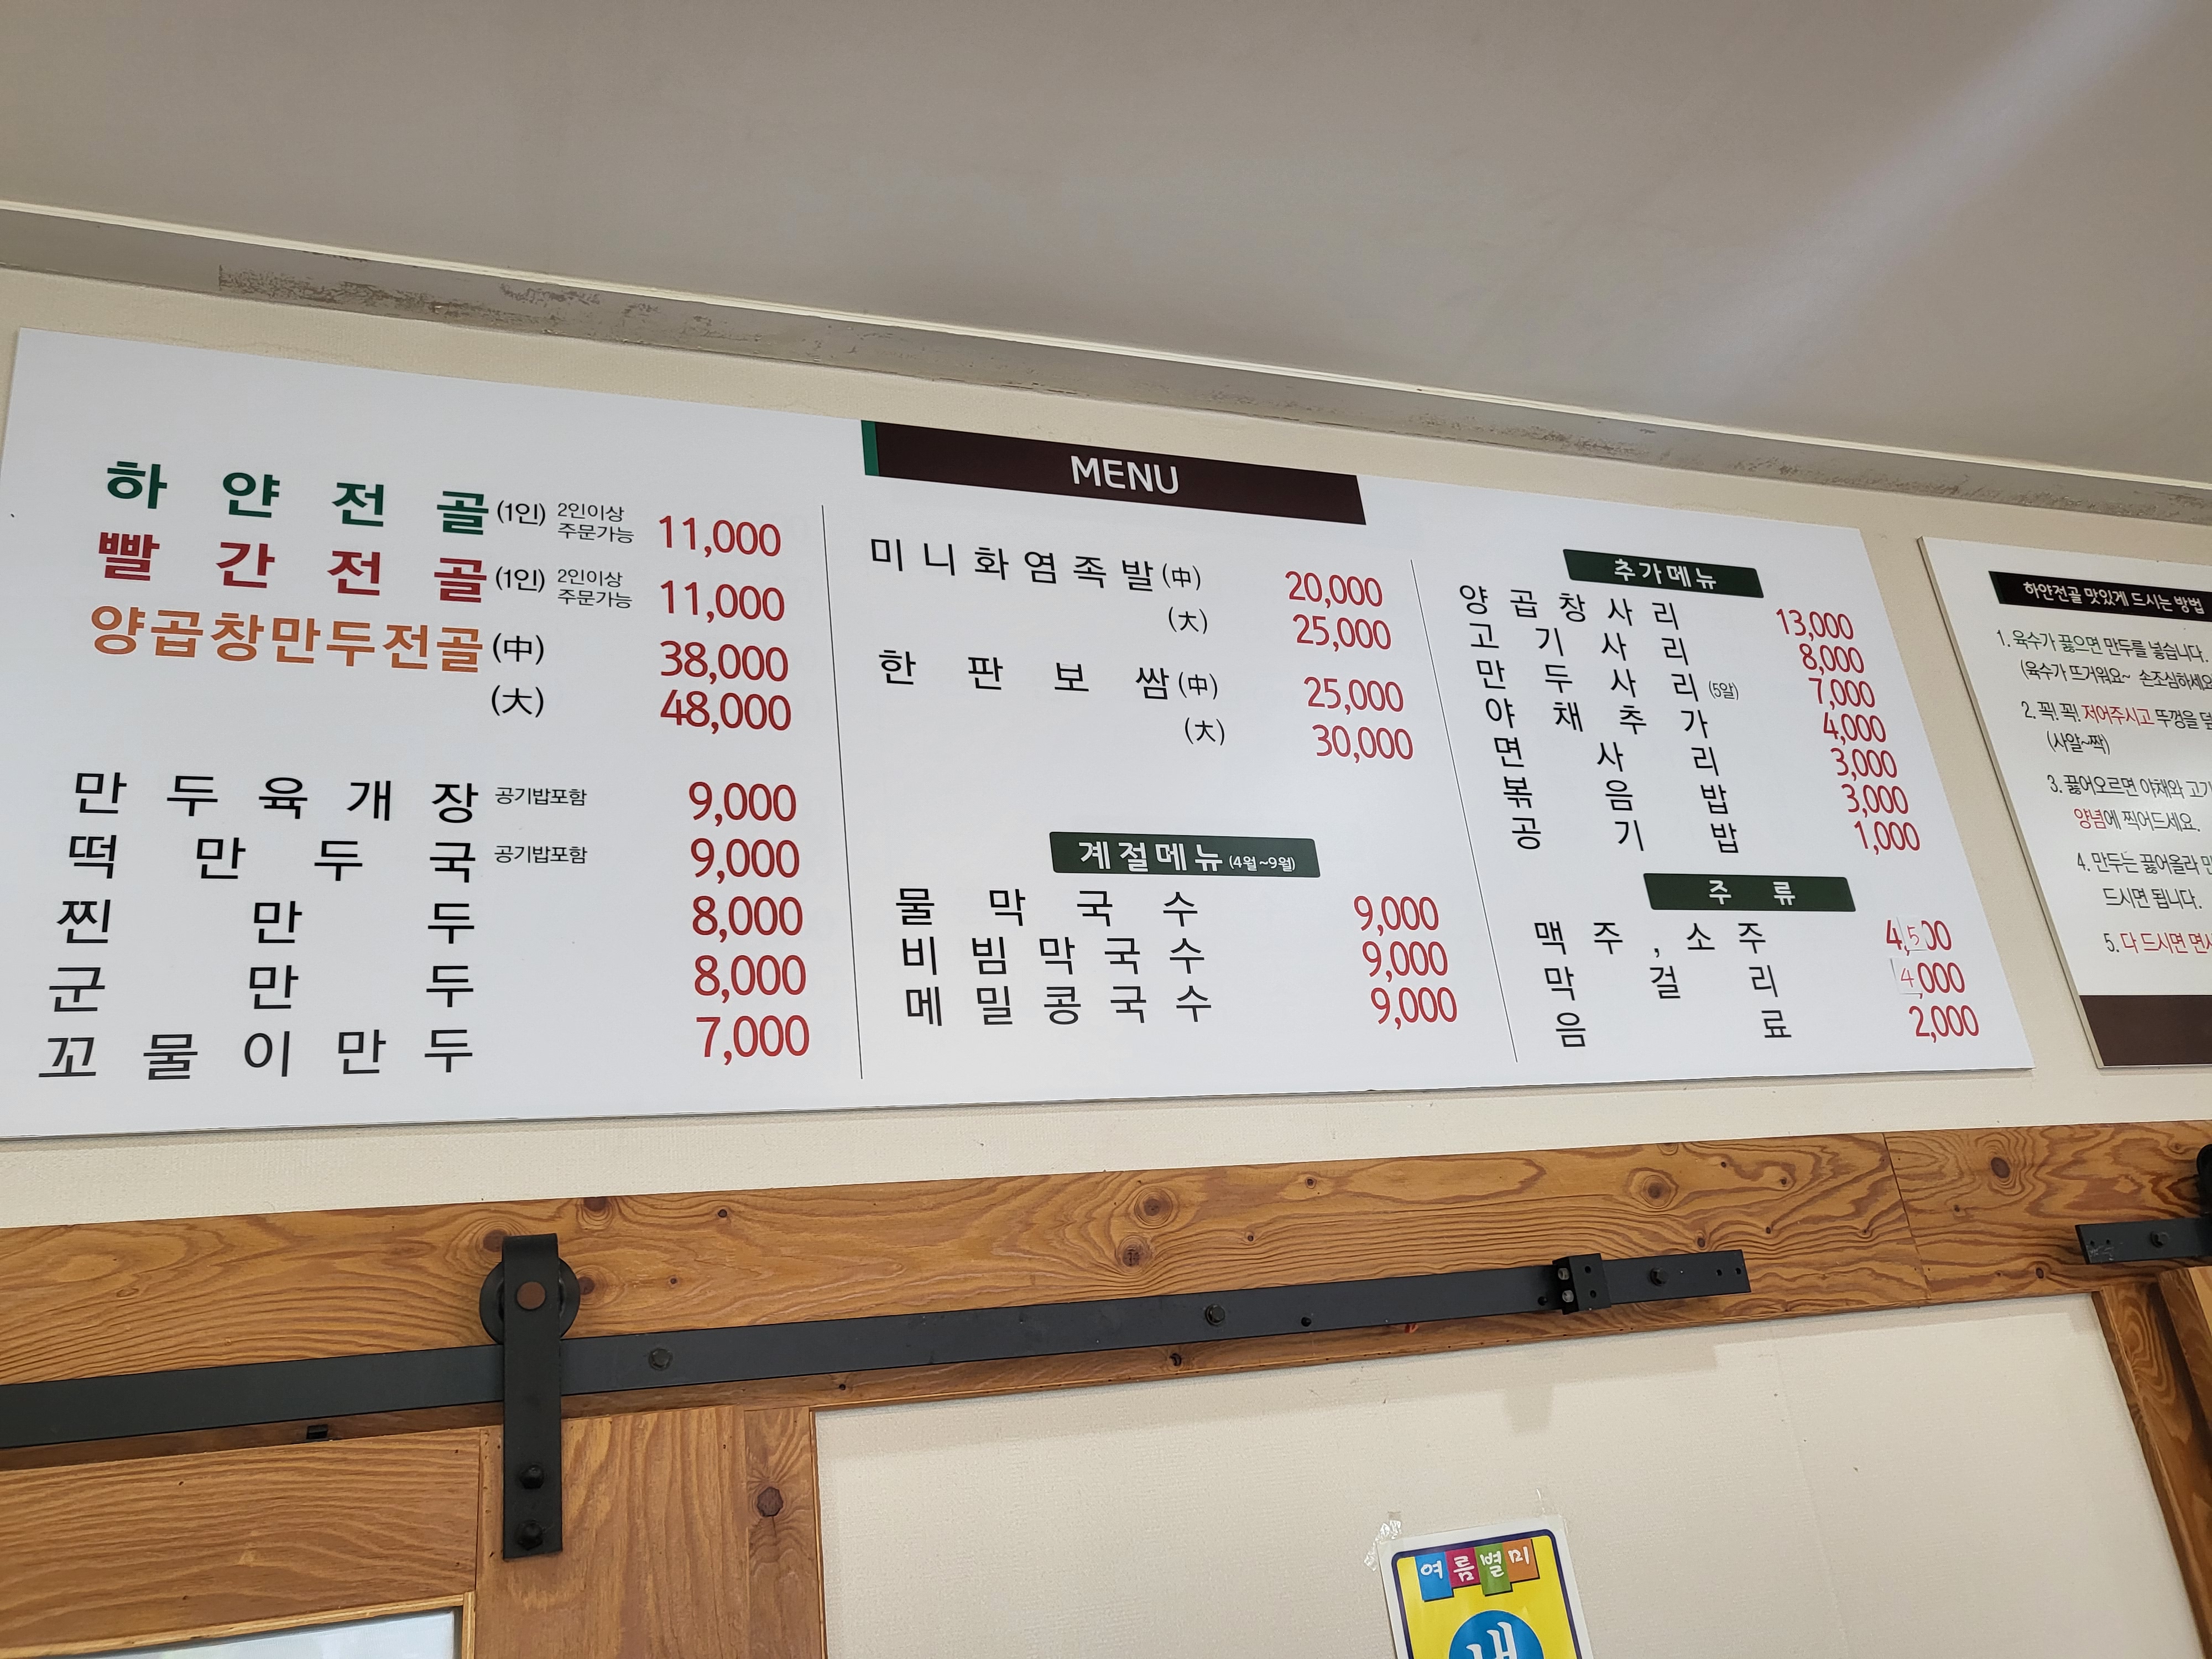 MENU
하얀전골(1인) 2인이상 주문가능 11,000
빨간전골(1인) 2인이상 주문가능 11,000
양곱창만두전골(中) 38,000
(大) 48,000
만두육개장 공기밥포함 9,000
떡만두국 공기밥포함 9,000
찐만두 8,000
군만두 8,000
꼬물이만두 7,000
미니화염족발(中) 20,000
(大) 25,000
한판보쌈(中) 25,000
(大) 30,000
계절메뉴(4월~9월)
물막국수 9,000
비빔막국수 9,000
메밀콩국수 9,000
추가메뉴
양곱창사리 13,000
고기사리 8,000
만두사리(5알) 7,000
야채추가 4,000
면사리 3,000
볶음밥 3,000
공기밥 1,000
주류
맥주,소주 4,500
막걸리 4,000
음료 2,000
하얀전골 맛있게 드시는 방법
1. 육수가 끓으면 만두를 넣습니다.
(육수가 뜨거워요~ 손조심하세요
2. 꾁! 꾁! 저어주시고 뚜껑을
(사알~짝)
3. 끓어오르면 야채와 고기
양념에 찍어드세요.
4. 만두는 끓어올라
드시면 됩니다.
5. 다 드시면 면사
여름별미
냉